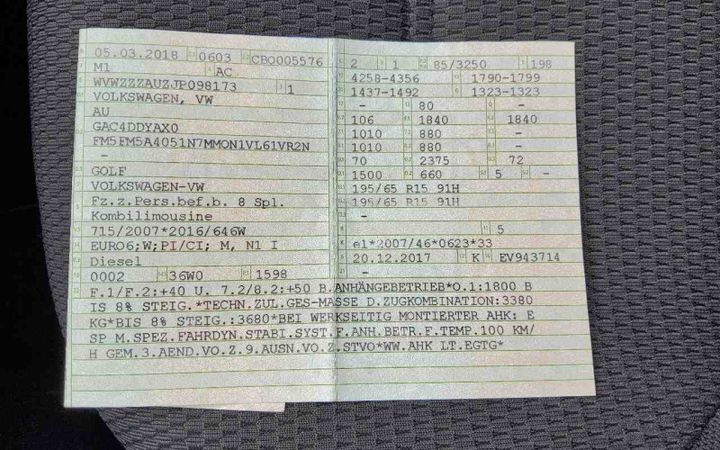 05.03.2018 0603 CBO005576
M1 AC
WVWZZZAUZJP098173 1
VOLKSWAGEN, VW
AU
GAC4DDYAX0
FM5FM5A4051N7MMON1VL61VR2N
-
GOLF
VOLKSWAGEN-VW
Fz.z.Pers.bef.b. 8 Spl.
Kombilimousine
715/2007*2016/646W
EURO6;W;PI/CI; M, N1 I
Diesel
0002 36W0 1598
2 1 85/3250 198
4258-4356 1790-1799
1437-1492 1323-1323
- 80 -
106 1840 1840
1010 880 -
1010 880 -
70 2375 72
1500 660 5 -
195/65 R15 91H
195/65 R15 91H
-
- 5
e1*2007/46*0623*33
20.12.2017 K EV943714
-
F.1/F.2:+40 U. 7.2/8.2:+50 B.ANHÄNGEBETRIEB*O.1:1800 B
IS 8% STEIG.*TECHN.ZUL.GES-MASSE D.ZUGKOMBINATION:3380
KG*BIS 8% STEIG.:3680*BEI WERKSEITIG MONTIERTER AHK: E
SP M.SPEZ.FAHRDYN.STABI.SYST.F.ANH.BETR.F.TEMP.100 KM/
H GEM.3.AEND.VO.Z.9.AUSN.VO.Z.STVO*WW.AHK LT.EGTG*